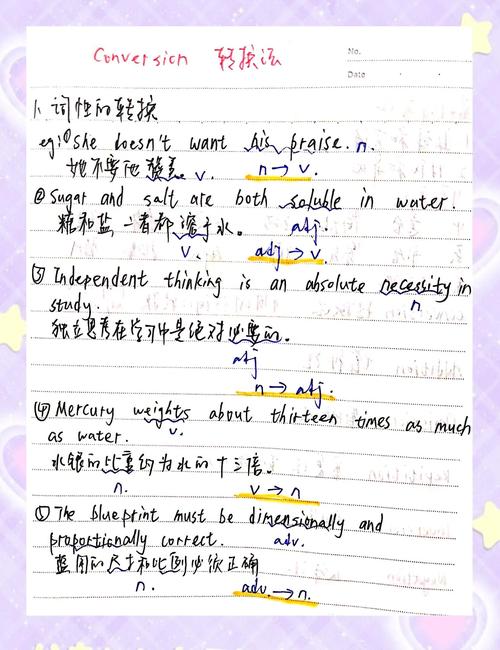 Conversion 转换法
No.
Date
1. 词性的转换
eg: ①She doesn't want his praise. n.
她不要他赞美 v. n→v.
② Sugar and salt are both soluble in water.
糖和盐二者都溶于水。 adj.
v. adj→v.
③ Independent thinking is an absolute necessity in
study. n
独立思考在学习中是绝对必要的.
adj
n→adj.
④ Mercury weights about thirteen times as much
as water. v.
水银的比重约为水的十三倍。
n. v→n
⑤ The blueprint must be dimensionally and
proportionally correct. adv.
蓝图的尺寸和比例必须正确
n. adv.→n.